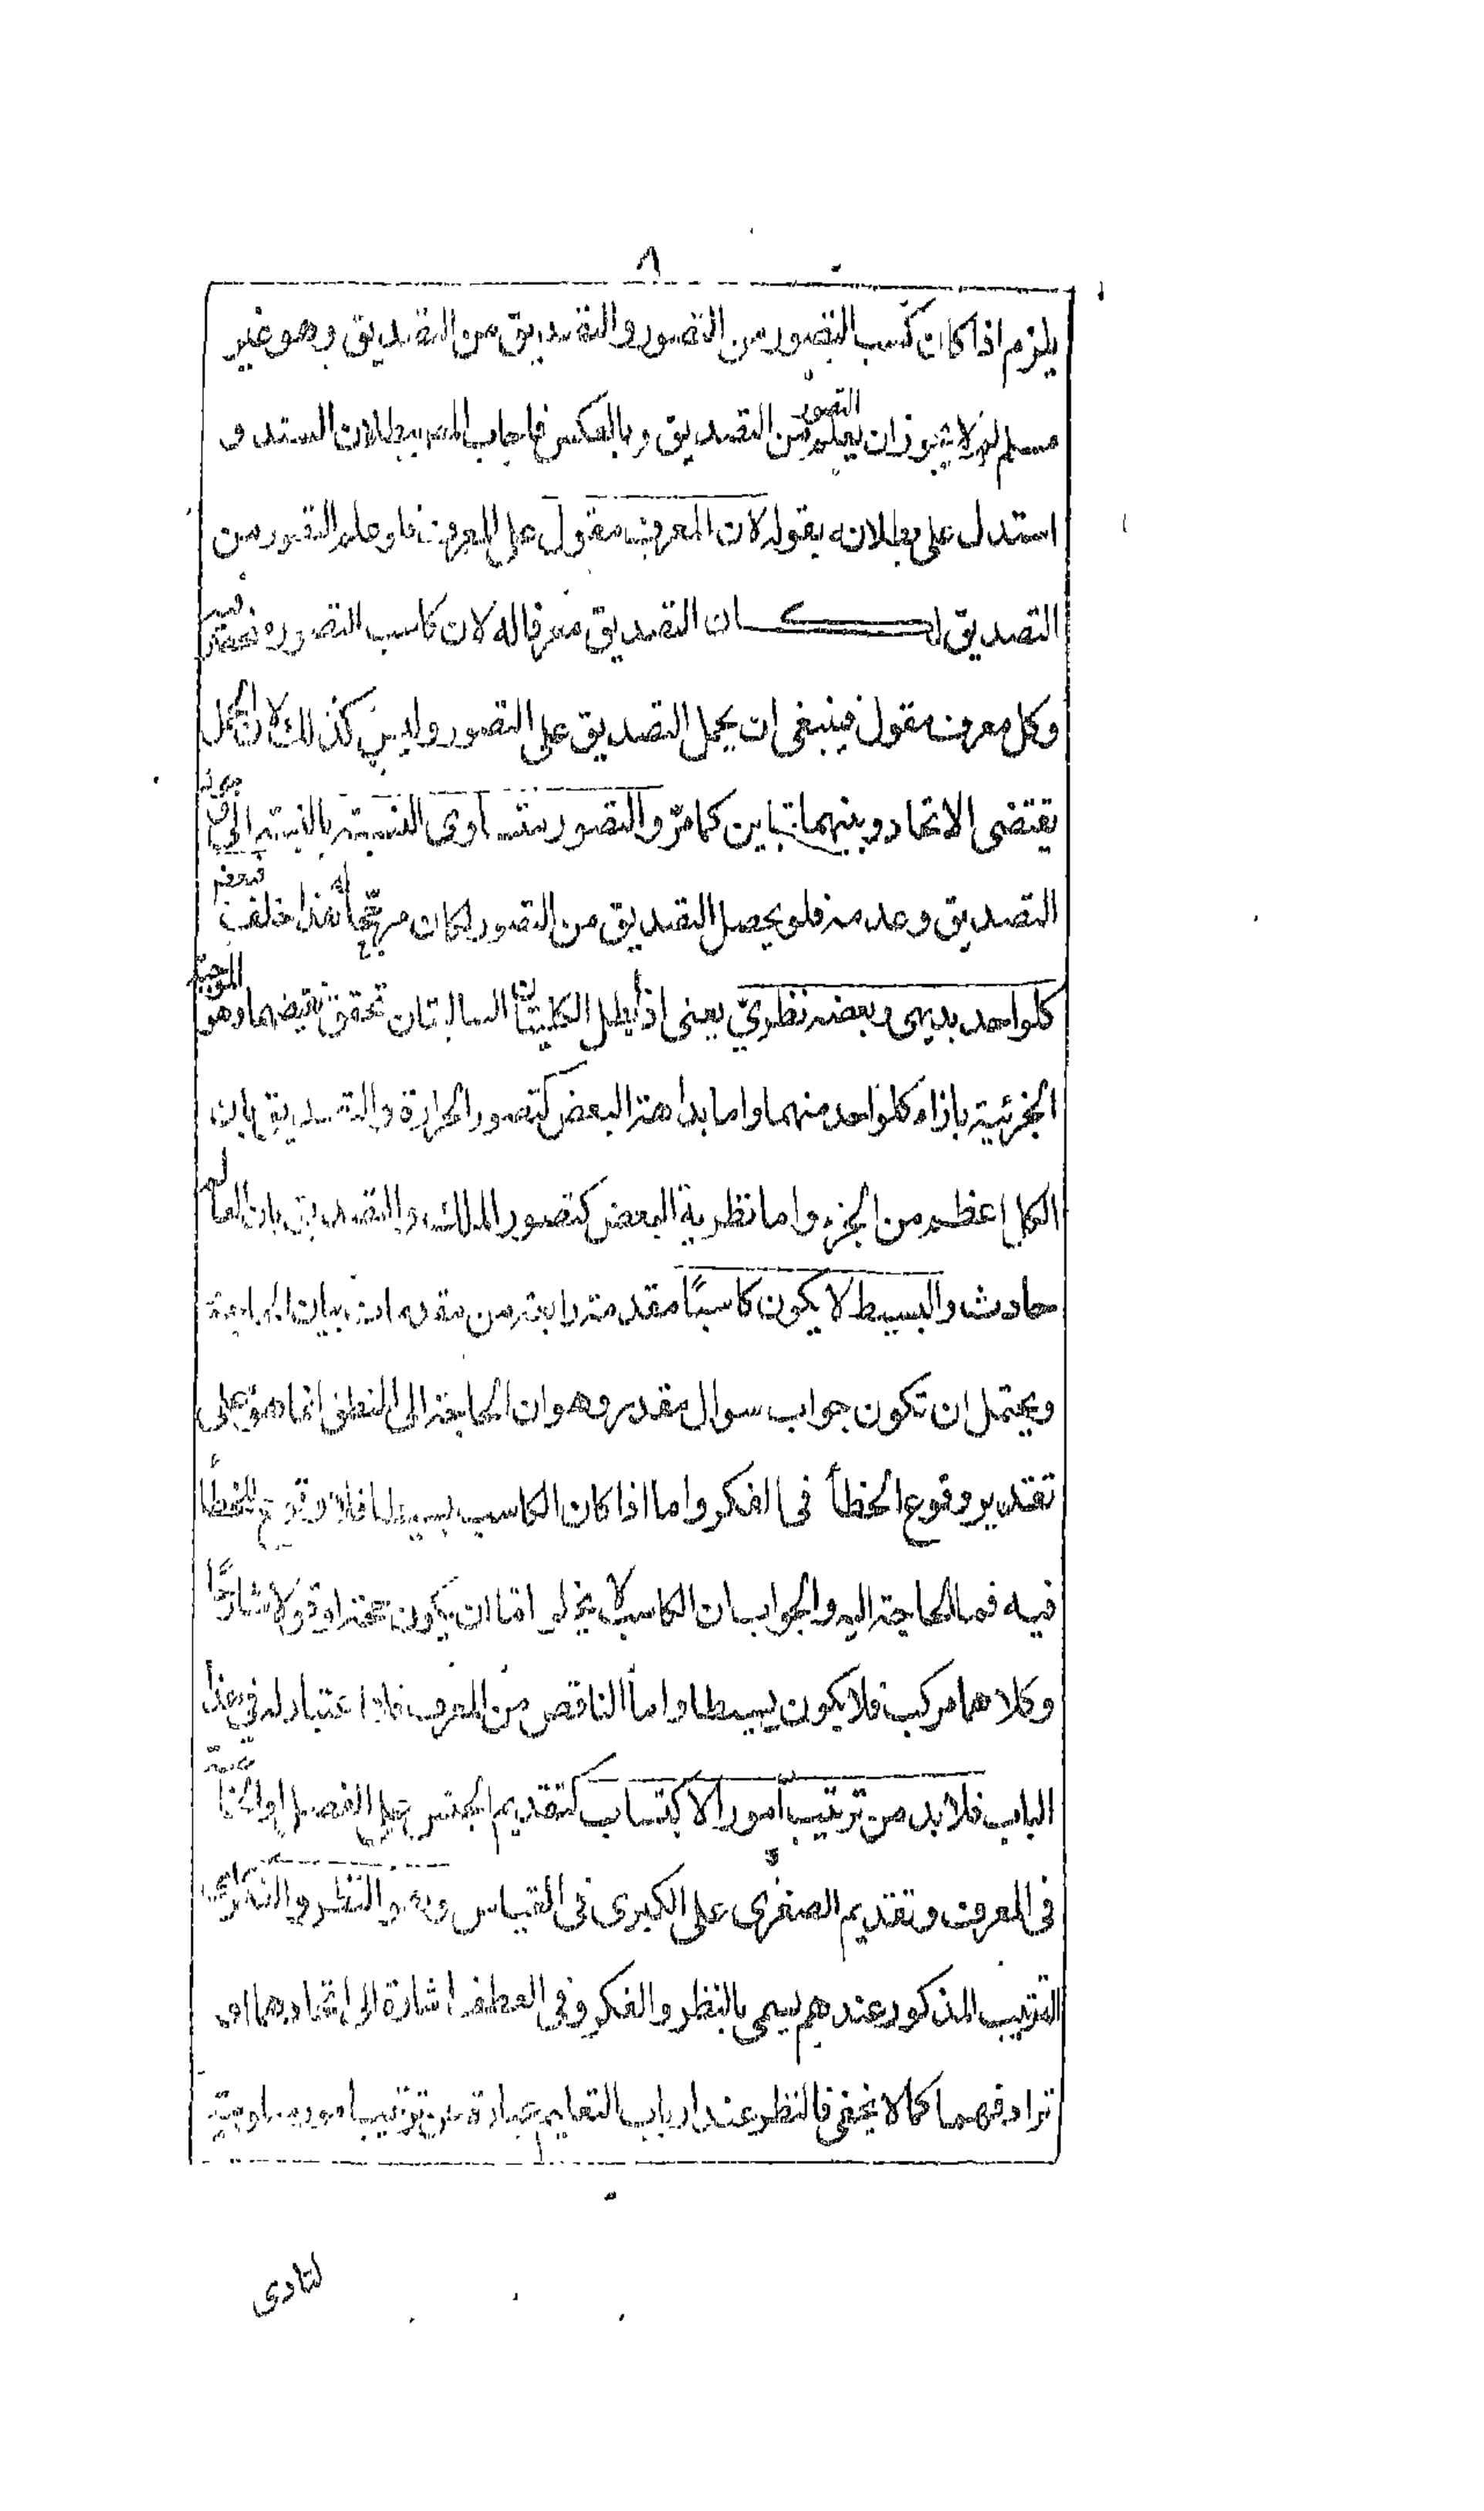 ٨
يلزم اذا كان كسب التصور من التصور والتصديق من التصديق وهو غير
مسلم لم لا يجوز ان يعلم التصور من التصديق وبالعكس فاجاب المص ببطلان السند و
استدل على بطلانه بقوله لان المعرف مقول على المعرف فلو علم التصور من
التصديق لكان التصديق معرفا له لان كاسب التصور منحصر فيه
وكل معرف مقول فينبغى ان يحمل التصديق على التصور وليس كذلك لان الحمل
يقتضى الاتحاد وبينهما تباين كما مرّ والتصور متساوى النسبة بالنسبة الى وجود
التصديق وعدمه فلو يحصل التصديق من التصور لكان مرجحًا له هذا خلف فبعض
كلواحد بديهى وبعضه نظرىّ يعنى اذا بطل الكليتان السالبتان تحقق نقيضهما وهو الموجبة
الجزئية بازاء كلواحد منهما واما بداهة البعض كتصور الحرارة والتصديق بان
الكل اعظم من الجزء واما نظرية البعض كتصور الملك والتصديق بان العالم
حادث والبسيط لا يكون كاسبًا مقدمة رابعة من مقدمات بيان الحاجة
ويحتمل ان تكون جواب سوال مقدر وهو ان الحاجة الى المنطق انما هو على
تقدير وقوع الخطأ فى الفكر واما اذا كان الكاسب بسيطا فلا وقوع للخطأ
فيه فما الحاجة اليه والجواب ان الكاسب لا يخلو اما ان يكون حجة او قولا شارحًا
وكلاهما مركب فلا يكون بسيطا واما الناقص من المعرف فلا اعتبار له فى هذا
الباب فلا بد من ترتيب امور الاكتساب كتقديم الجنس على الفصل او الخاصة
فى المعرف وتقديم الصغرى على الكبرى فى القياس وهو النظر والفكر اى
الترتيب المذكور عندهم يسمى بالنظر والفكر وفى العطف اشارة الى اتحادهما اى
ترادفهما كما لا يخفى فالنظر عند ارباب التعليم عبارة عن ترتيب امور معلومة
لتادى